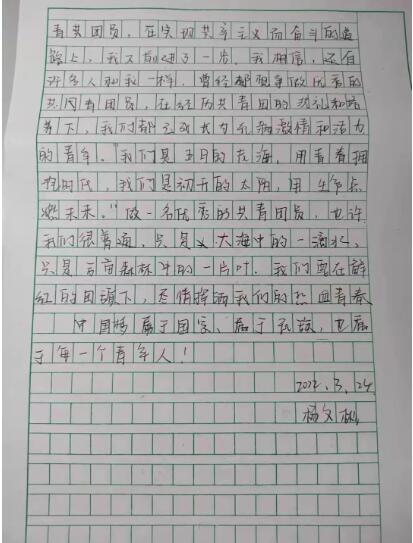 青共团员，在实现共产主义而奋斗的道
路上，我又前进了一步。我相信，还有
许多人和我一样，曾经都想争做优秀的
共青团员，在经历共青团的洗礼和培
养下，我们都成长为充满激情和活力
的青年。"我们是五月的花海，用青春拥
抱时代，我们是初升的太阳，用生命点
燃未来。"做一名优秀的共青团员，也许
我们很普通，只是大海中的一滴水，
只是万亩森林中的一片叶。我们要在鲜
红的团旗下，尽情挥洒我们的热血青春
中国梦属于国家、属于民族，也属
于每一个青年人！
3.24
杨文